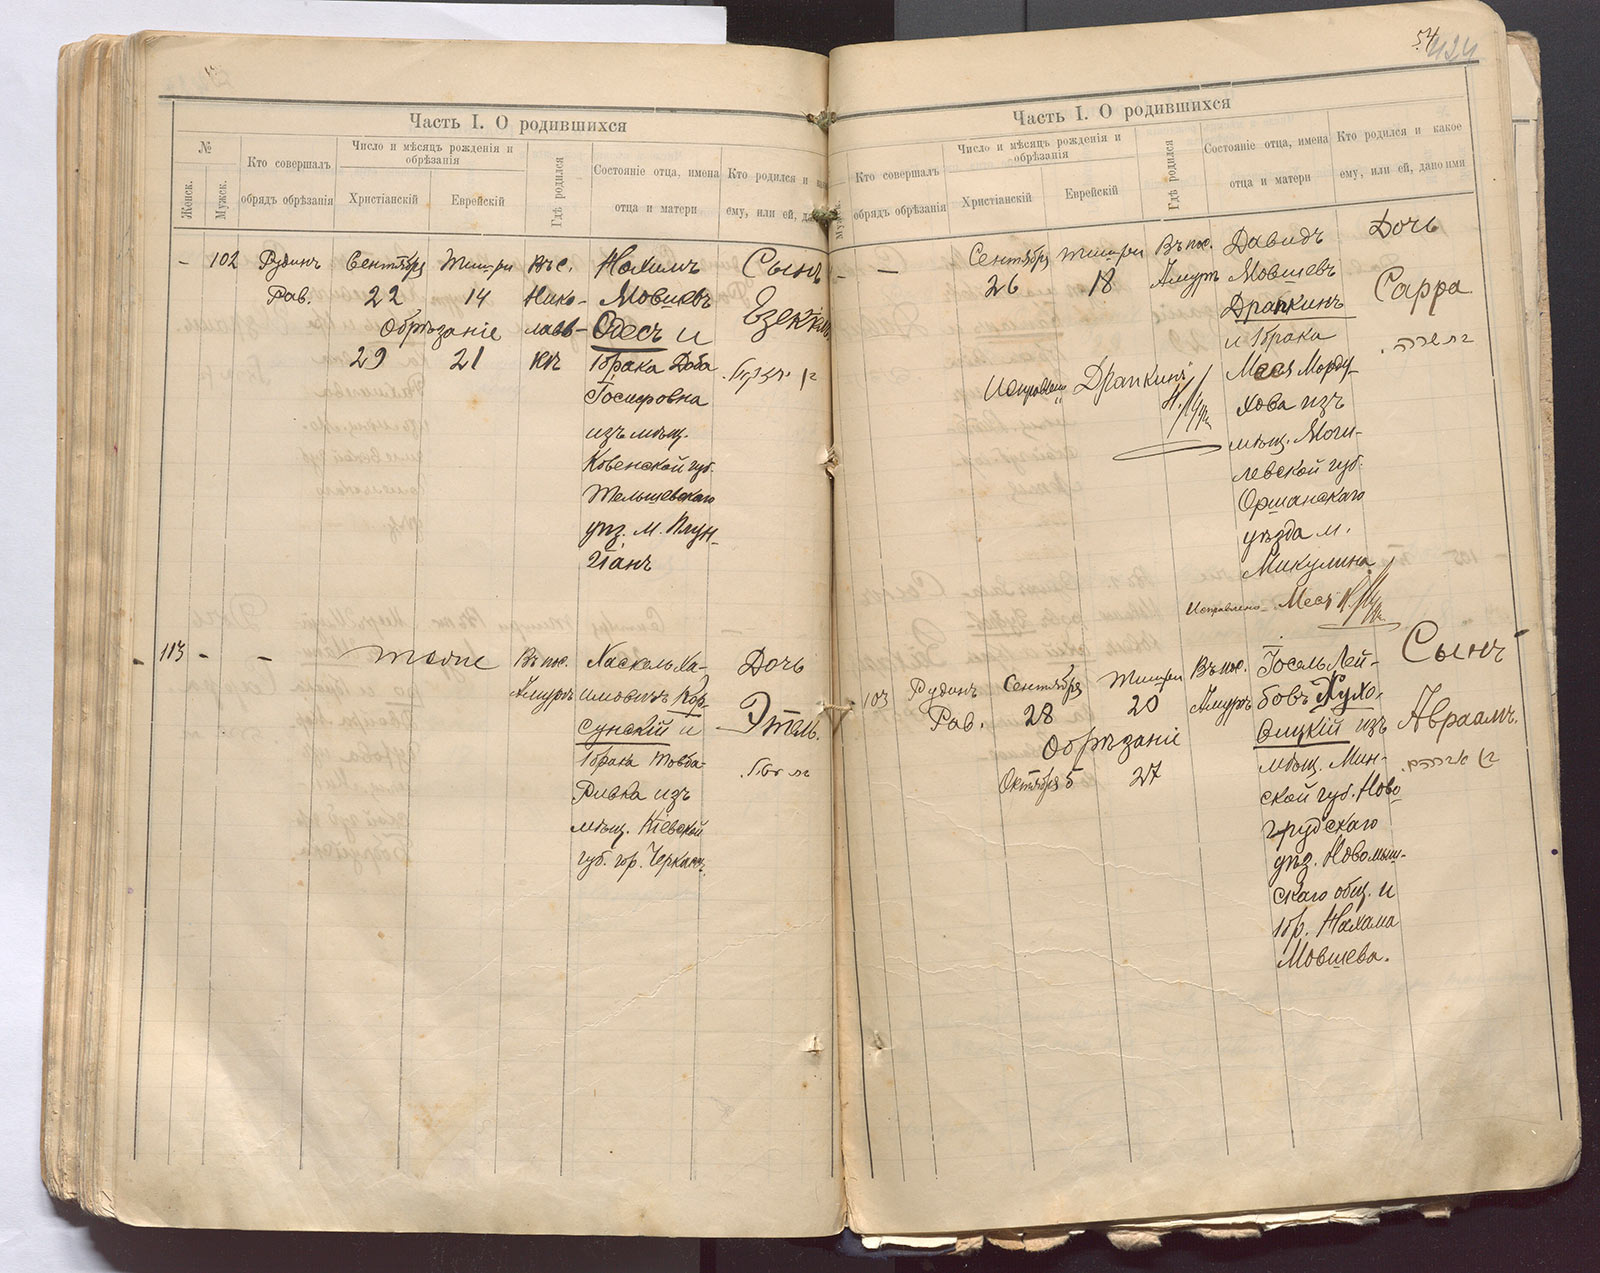 Часть I. О родившихся
№
Женск.
Мужск.
Кто совершалъ
обрядъ обрѣзанія
Число и мѣсяцъ рожденія и
обрѣзанія
Христіанскій
Еврейскій
Гдѣ родился
Состояніе отца, имена
отца и матери
Кто родился и
ему, или ей, да
– 102
Рудинъ
Рав.
Сентября
22
Тишри
14
Обрѣзаніе
29
21
Въ с.
Нико-
лаев-
кѣ
Нохимъ
Мовшевъ
Одесъ и
1 брака Доба
Іосифовна
изъ мѣщ.
Ковенской губ.
Тельшевскаго
уѣз. м. Плун-
гіанъ
Сынъ
113 -
-
тоже
Въ пос.
Амуръ
Хаскель Ха-
имовичъ Кор-
сунскій и
1 брака Товба-
Ривка изъ
мѣщ. Кіевской
губ. гор. Черкасъ
Дочь
Этель.
54
424
Часть I. О родившихся
Мужск.
Кто совершалъ
обрядъ обрѣзанія
Число и мѣсяцъ рожденія и
обрѣзанія
Христіанскій
Еврейскій
Гдѣ родился
Состояніе отца, имена
отца и матери
Кто родился и какое
ему, или ей, дано имя
– –
Сентября
26
Тишри
18
Въ пос.
Амуръ
Давидъ
Мовшевъ
Драпкинъ
и 1 брака
Меся Морду-
хова изъ
мѣщ. Моги-
левской губ.
Оршанскаго
уѣзда м.
Микулина
Дочь
Сарра
בת שרה.
Исправлено Драпкинъ
Исправлено Меся
103
Рудинъ
Рав.
Сентября
28
Тишри
20
Обрѣзаніе
Октября 5
27
Въ пос.
Амуръ
Іосель Лей-
бовъ Хухо-
вицкій изъ
мѣщ. Мин-
ской губ. Ново
грудскаго
уѣз. Новомыш-
скаго общ. и
1 бр. Нахама
Мовшева.
Сынъ
Авраамъ.
בן אברהם.